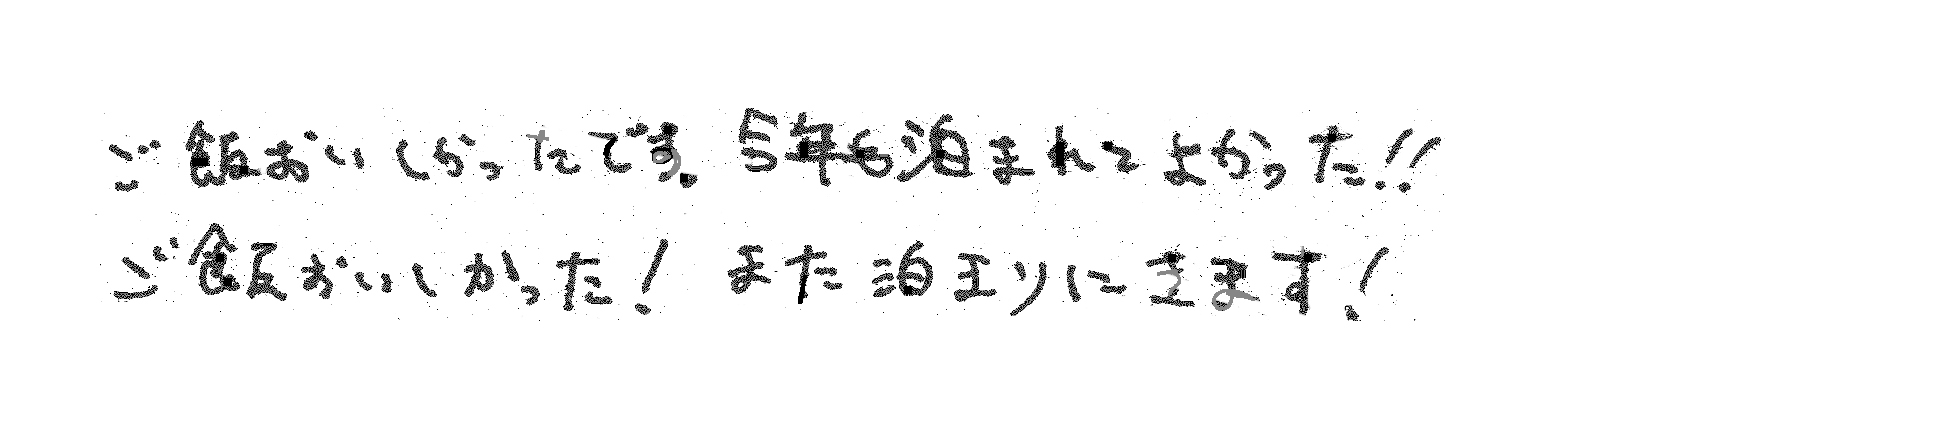 ご飯おいしかったです。5年も泊まれてよかった!!
ご飯おいしかった! また泊エリにきます!